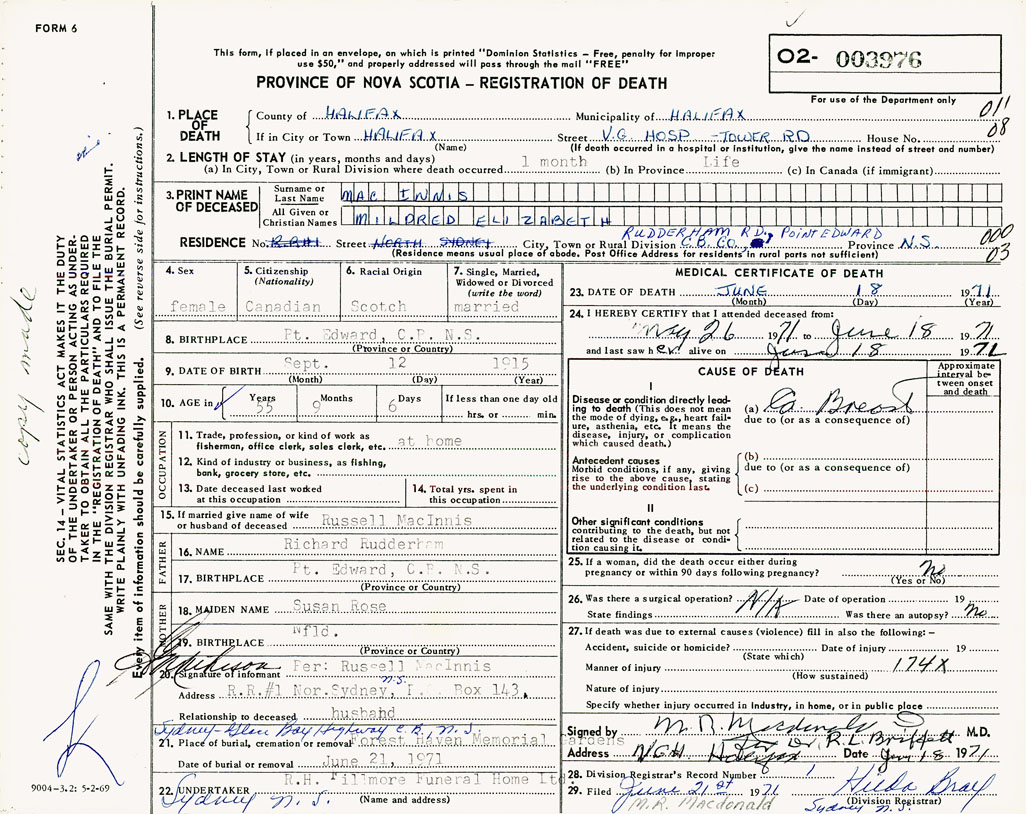 FORM 6
This form, if placed in an envelope, on which is printed "Dominion Statistics – Free, penalty for improper
use $50," and properly addressed will pass through the mail "FREE"
PROVINCE OF NOVA SCOTIA – REGISTRATION OF DEATH
02- 003976
For use of the Department only
011
08
1. PLACE OF DEATH
County of HALIFAX Municipality of HALIFAX
If in City or Town HALIFAX Street V.G. HOSP – TOWER RD House No.
(Name) (If death occurred in a hospital or institution, give the name instead of street and number)
2. LENGTH OF STAY (in years, months and days)
(a) In City, Town or Rural Division where death occurred 1 month (b) In Province Life (c) In Canada (if immigrant)
3. PRINT NAME OF DECEASED
Surname or Last Name MAC INNIS
All Given or Christian Names MILDRED ELIZABETH
RUDDERHAM RD., POINT EDWARD
RESIDENCE No. R.R#1 Street NORTH SYDNEY City, Town or Rural Division C.B. CO., Province N.S.
(Residence means usual place of abode. Post Office Address for residents in rural parts not sufficient)
000
03
4. Sex female
5. Citizenship (Nationality) Canadian
6. Racial Origin Scotch
7. Single, Married, Widowed or Divorced (write the word) married
8. BIRTHPLACE Pt. Edward, C.B. N.S.
(Province or Country)
9. DATE OF BIRTH Sept. 12 1915
(Month) (Day) (Year)
10. AGE in Years 55 Months 9 Days 6 If less than one day old
hrs. or min.
OCCUPATION
11. Trade, profession, or kind of work as
fisherman, office clerk, sales clerk, etc. at home
12. Kind of industry or business, as fishing,
bank, grocery store, etc.
13. Date deceased last worked
at this occupation
14. Total yrs. spent in
this occupation
15. If married give name of wife
or husband of deceased Russell MacInnis
FATHER
16. NAME Richard Rudderham
17. BIRTHPLACE Pt. Edward, C.B. N.S.
(Province or Country)
MOTHER
18. MAIDEN NAME Susan Rose
19. BIRTHPLACE Nfld.
(Province or Country)
20. Signature of informant Per: Russell MacInnis
N.S.
Address R.R.#1 Nor.Sydney, Box 143,
Relationship to deceased husband
Sydney-Glace Bay Highway C.B., N.S.
21. Place of burial, cremation or removal Forest Haven Memorial Gardens
Date of burial or removal June 21, 1971
R.H. Fillmore Funeral Home Ltd
22. UNDERTAKER Sydney N.S.
(Name and address)
MEDICAL CERTIFICATE OF DEATH
23. DATE OF DEATH JUNE 18 1971
(Month) (Day) (Year)
24. I HEREBY CERTIFY that I attended deceased from:
May 26 1971 to June 18 1971
and last saw her alive on June 18 1971
CAUSE OF DEATH
Approximate interval between onset and death
I
Disease or condition directly leading to death (This does not mean the mode of dying, e.g., heart failure, asthenia, etc. It means the disease, injury, or complication which caused death.)
(a) Ca Breast
due to (or as a consequence of)
Antecedent causes
Morbid conditions, if any, giving rise to the above cause, stating the underlying condition last.
(b)
due to (or as a consequence of)
(c)
II
Other significant conditions
contributing to the death, but not related to the disease or condition causing it.
25. If a woman, did the death occur either during
pregnancy or within 90 days following pregnancy? No
(Yes or No)
26. Was there a surgical operation? N/A Date of operation 19
State findings Was there an autopsy? No
27. If death was due to external causes (violence) fill in also the following: –
Accident, suicide or homicide? Date of injury 19
(State which)
Manner of injury 174X
(How sustained)
Nature of injury
Specify whether injury occurred in industry, in home, or in public place
Signed by M. R. Macdonald M.D.
for Dr. R.L.
Address V.G.H Halifax Date June 18 1971
28. Division Registrar's Record Number
29. Filed June 21st 1971 Hilda Bray
(Division Registrar)
M.R. Macdonald Sydney N.S.
SEC. 14 – VITAL STATISTICS ACT MAKES IT THE DUTY
OF THE UNDERTAKER OR PERSON ACTING AS UNDER-
TAKER TO OBTAIN ALL THE PARTICULARS REQUIRED
IN THE "REGISTRATION OF DEATH" AND TO FILE THE
SAME WITH THE DIVISION REGISTRAR WHO SHALL ISSUE THE BURIAL PERMIT.
WRITE PLAINLY WITH UNFADING INK. THIS IS A PERMANENT RECORD.
Every item of information should be carefully supplied. (See reverse side for instructions.)
copy made
9004-3.2: 5-2-69